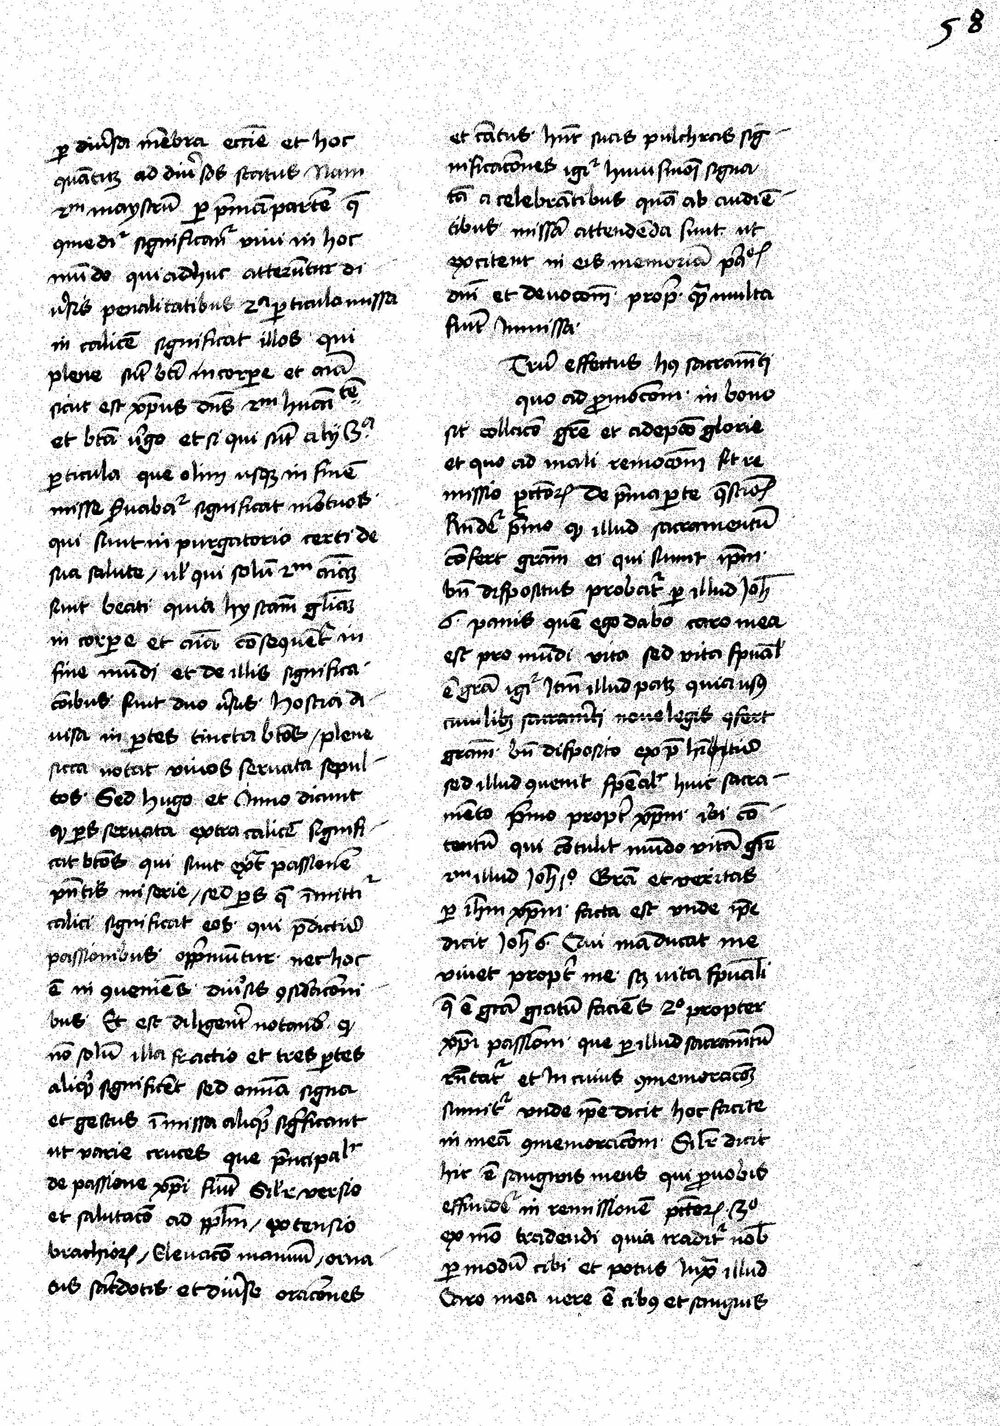 58
ꝑ diu̾sa mēbra eccīe et hoc
quātū ad diu̾sos status Nam
2m maystrū ꝑ p̄mā partē q̄
comedit᷑ significāt᷑ viui in hoc
mūdo qui adhuc atterūtur di
u̾sis penalitatibus 2a ꝑticula missa
in calicē significat illos qui
plene sūt bt̄i in corpe et aīa
sicut est xp̄us dn̄s 2m hūanitatē
et bt̄a u̾go et si qui sūt alij 3a
ꝑticula que olim usqꝫ in finē
misse s̄uabat᷑ significat mortuos
qui sunt in purgatorio certi de
sua salute / ul̄ qui solū 2m aīas
sunt beati quia hy stām gl̄iaꝫ
in corpe et aīa cōsequent᷑ in
fine mūdi et de illis significa
cōibus sunt duo u̾sus Hostia di
uisa in ꝑtes tincta btōs / plene
sicca notat viuos seruata sepul
tos Sed Hugo et Inno dicunt
ꝙ ꝑs seruata extra calicē signifi
cat btōs qui sunt ext̄ passionē
pn̄tis miserie / sed ꝑs q̄ īmittit᷑
calici significat eos qui p̄dictis
passionibus opp̄mūtur nec hoc
ē inꝯueniēs diu̾sis ꝯsid̾acōni
bus Et est diligent̾ notand̄ ꝙ
nō solū illa fractio et tres ꝑtes
aliqd̄ significēt sed omīa signa
et gestus ī missa aliqd̄ significant
ut varie cruces que p̄ncipal̾r
de passione xp̄i fiūt Sil̄r versio
et salutacō ad pplm̄ / extensio
brachioꝝ / Eleuacō manuū / orna
tus sac̾dotis et diu̾se oracōnes
et cātus hn̄t suas pulchras sig
nificacōnes igit᷑ huiusmōi signa
tā a celebrātibus quā ab audiē
tibus missā attendēda sunt ut
excitent in eis memoriā passiōis
dn̄i et deuocōni propt̾ q̄ multa
fiūt in missa
Triū effectus hꝯ sacram̄ti
quo ad ꝓmocōni in bono
sit collacō grē et adepcō glorie
et quo ad mali remocōni fit re
missio pctōꝝ De p̄ma ꝑte q̄stiōꝝ
Rn̄det᷑ p̄mo ꝙ illud sacramentū
cōfert gram̄ ei qui sumit ip̄m
bn̄ dispositus probat᷑ ꝑ illud Joh̄
6 panis quē ego dabo caro mea
est pro mūdi vita sed vita spūal̄
ē grā igit᷑ Itm̄ illud patꝫ quia usꝯ
cuiuslibꝫ sacram̄ti noue legis ꝯfert
gram̄ bn̄ disposito
sed illud ꝯuenit sp̄eal̾r huic sacra
mēto p̄mo propt̾ xp̄m ibi cō
tentū qui cōtulit mūdo vitā grē
2m illud Joh̄ 1o Grā et veritas
ꝑ ih̄m xp̄m facta est vnde ip̄e
dicit Joh̄ 6 Qui māducat me
viuet propt̾ me scꝫ vita spūali
q̄ ē grā gratū faciēs 2o propter
xp̄i passionē que ꝑ illud sacram̄tū
rn̄tat᷑ et In cuius ꝯmemoracōeꝫ
sumit᷑ vnde ip̄e dicit hoc facite
in meā ꝯmemoracōni Sil̄r dicit
hic ē sanguis meus qui ꝓ vobis
effundet᷑ in remissionē pctōꝝ 3o
ex mō tradendi quia tradit᷑ nob̄
ꝑ modū cibi et potus Iuxᵃ illud
Caro mea vere ē cibꝯ et sanguis